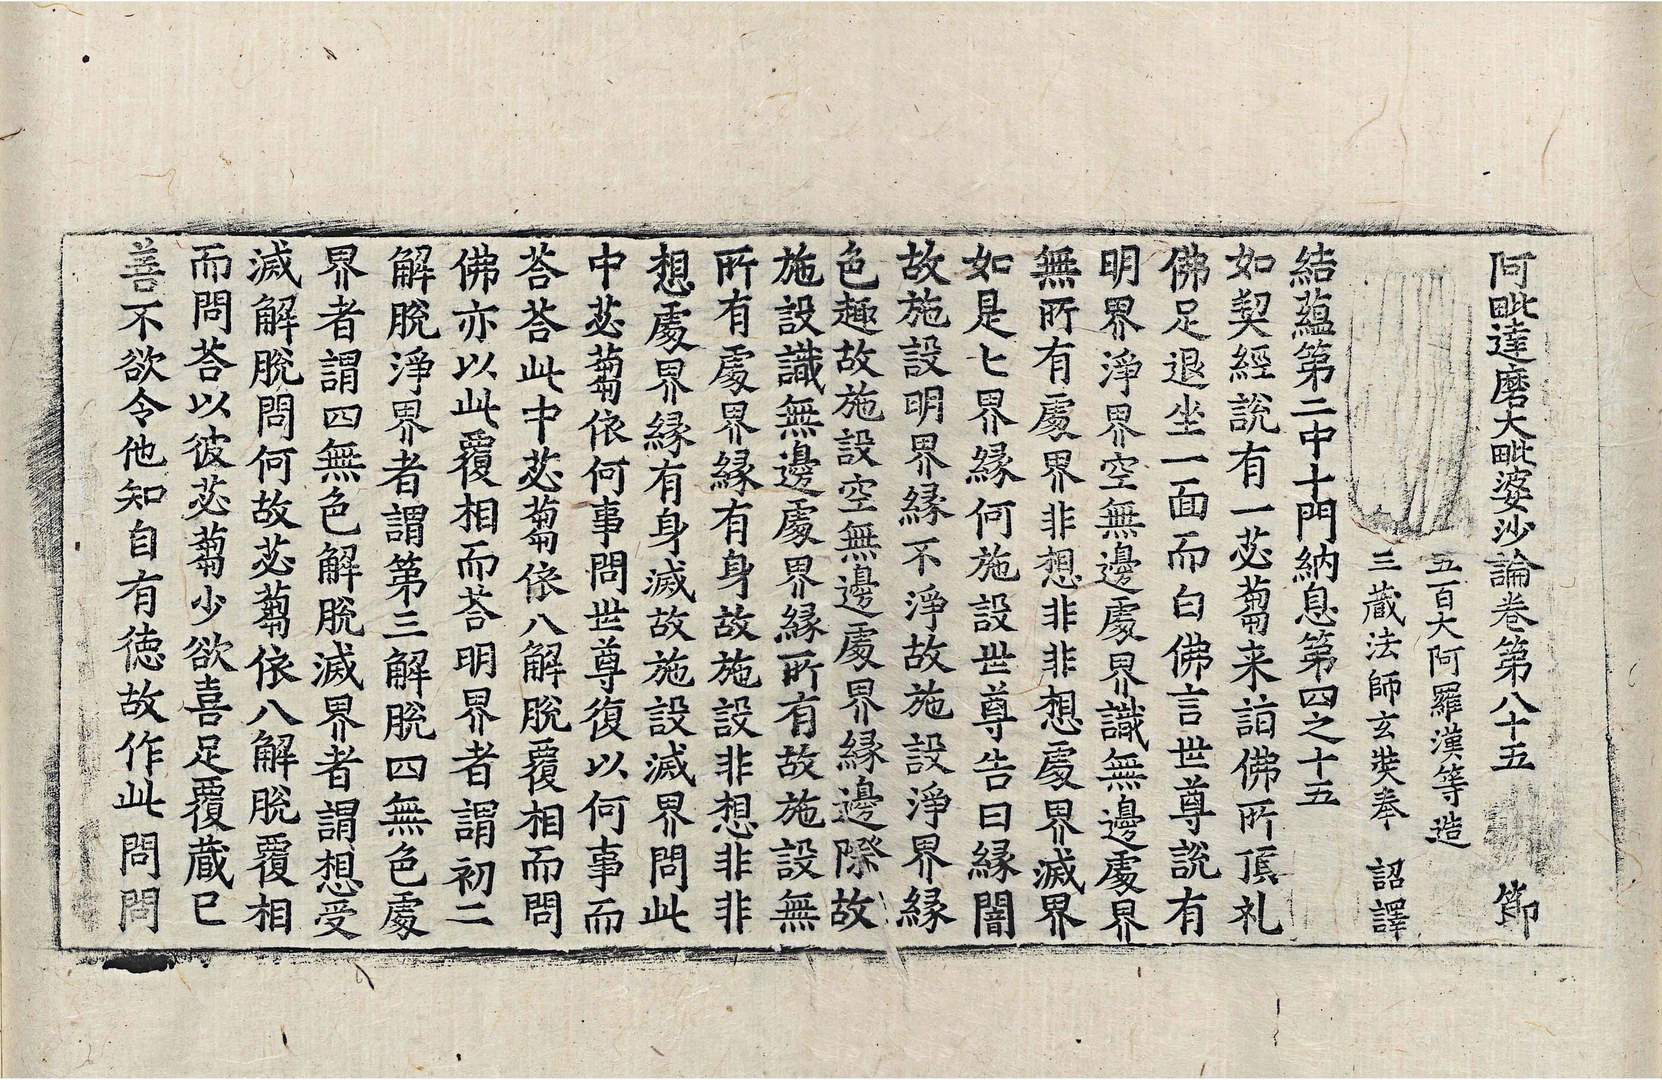 阿毗達磨大毗婆沙論卷第八十五　節
五百大阿羅漢等造
三藏法師玄奘奉　詔譯
結蘊第二中十門納息第四之十五
如契經說有一苾蒭来詣佛所頂礼
佛足退坐一面而白佛言世尊說有
明界淨界空無邊處界識無邊處界
無所有處界非想非非想處界滅界
如是七界緣何施設世尊告曰緣闇
故施設明界緣不淨故施設淨界緣
色趣故施設空無邊處界緣邊際故
施設識無邊處界緣所有故施設無
所有處界緣有身故施設非想非非
想處界緣有身滅故施設滅界問此
中苾蒭依何事問世尊復以何事而
荅荅此中苾蒭依八解脫覆相而問
佛亦以此覆相而荅明界者謂初二
解脫淨界者謂第三解脫四無色處
界者謂四無色解脫滅界者謂想受
滅解脫問何故苾蒭依八解脫覆相
而問荅以彼苾蒭少欲喜足覆藏已
善不欲令他知自有德故作此問問